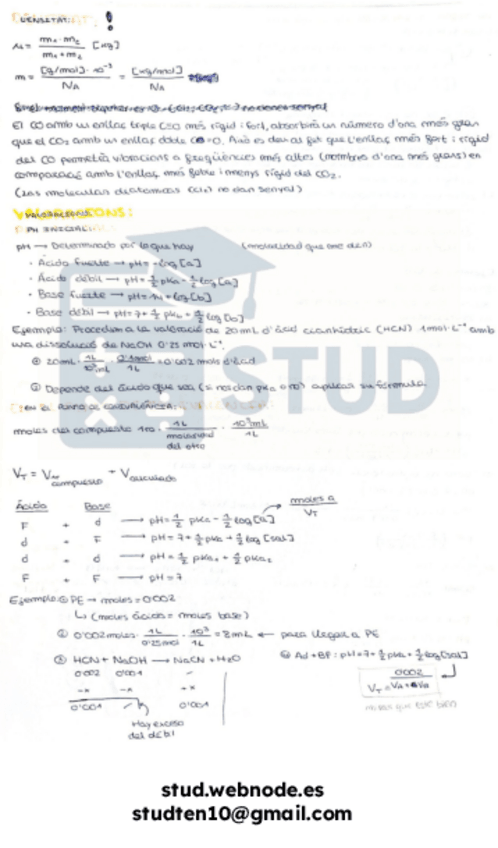 DENSITAT: !
μ = m₁·m₂ / m₁+m₂ [Kg]
m = [g/mol]·10⁻³ / N_A = [Kg/mol] / N_A
El CO amb un enllaç triple C≡O més rígid i fort, absorbirà un número d'ona més gran
que el CO₂ amb un enllaç doble C=O. Això es deu al fet que l'enllaç més fort i rígid
del CO permetrà vibracions a freqüències més altes (nombres d'ona més grans) en
comparació amb l'enllaç més feble i menys rígid del CO₂.
(Las moleculas diatomicas (Cl₂) no dan senyal)
VALORACIONS:
PH INICIAL:
pH → Determinado por lo que hay (molaridad que me den)
· Ácido fuerte → pH = -log[a]
· Ácido débil → pH = ½ pKa - ½ log[a]
· Base fuerte → pH = 14 + log[b]
· Base débil → pH = 7 + ½ pKa + ½ log[b]
Ejemplo: Procedim a la valoració de 20mL d'àcid cianhídric (HCN) 1mol·L⁻¹ amb
una dissolució de NaOH 0'25 mol·L⁻¹.
20mL · 1L / 10³mL · 0'1mol / 1L = 0'002 mols d'àcid
① Depende del ácido que sea (si nos dan pKa o no) aplicar su fórmula.
EN EL PUNTO DE EQUIVALENCIA:
moles del compuesto 1ro · 1L / molaridad del otro · 10³mL / 1L
V_T = V compuesto + V calculado
Ácido Base
F + d → pH = ½ pKa - ½ log[a] → moles a / V_T
d + F → pH = 7 + ½ pKa + ½ log[sal]
d + d → pH = ½ pKa₁ + ½ pKa₂
F + F → pH = 7
Ejemplo: ① PE → moles = 0'002
↳ (moles ácido = moles base)
② 0'002moles · 1L / 0'25mol · 10³ / 1L = 8mL ← para llegar a PE
③ HCN + NaOH → NaCN + H₂O
0'002 0'001 -
-x -x +x
0'001 - 0'001
Hay exceso
del débil
④ Ad + BF: pH = 7 + ½ pKa + ½ log[sal]
0'002 / V_T = V_A + V_B
mirar que esté bien
STUD
stud.webnode.es
studten10@gmail.com